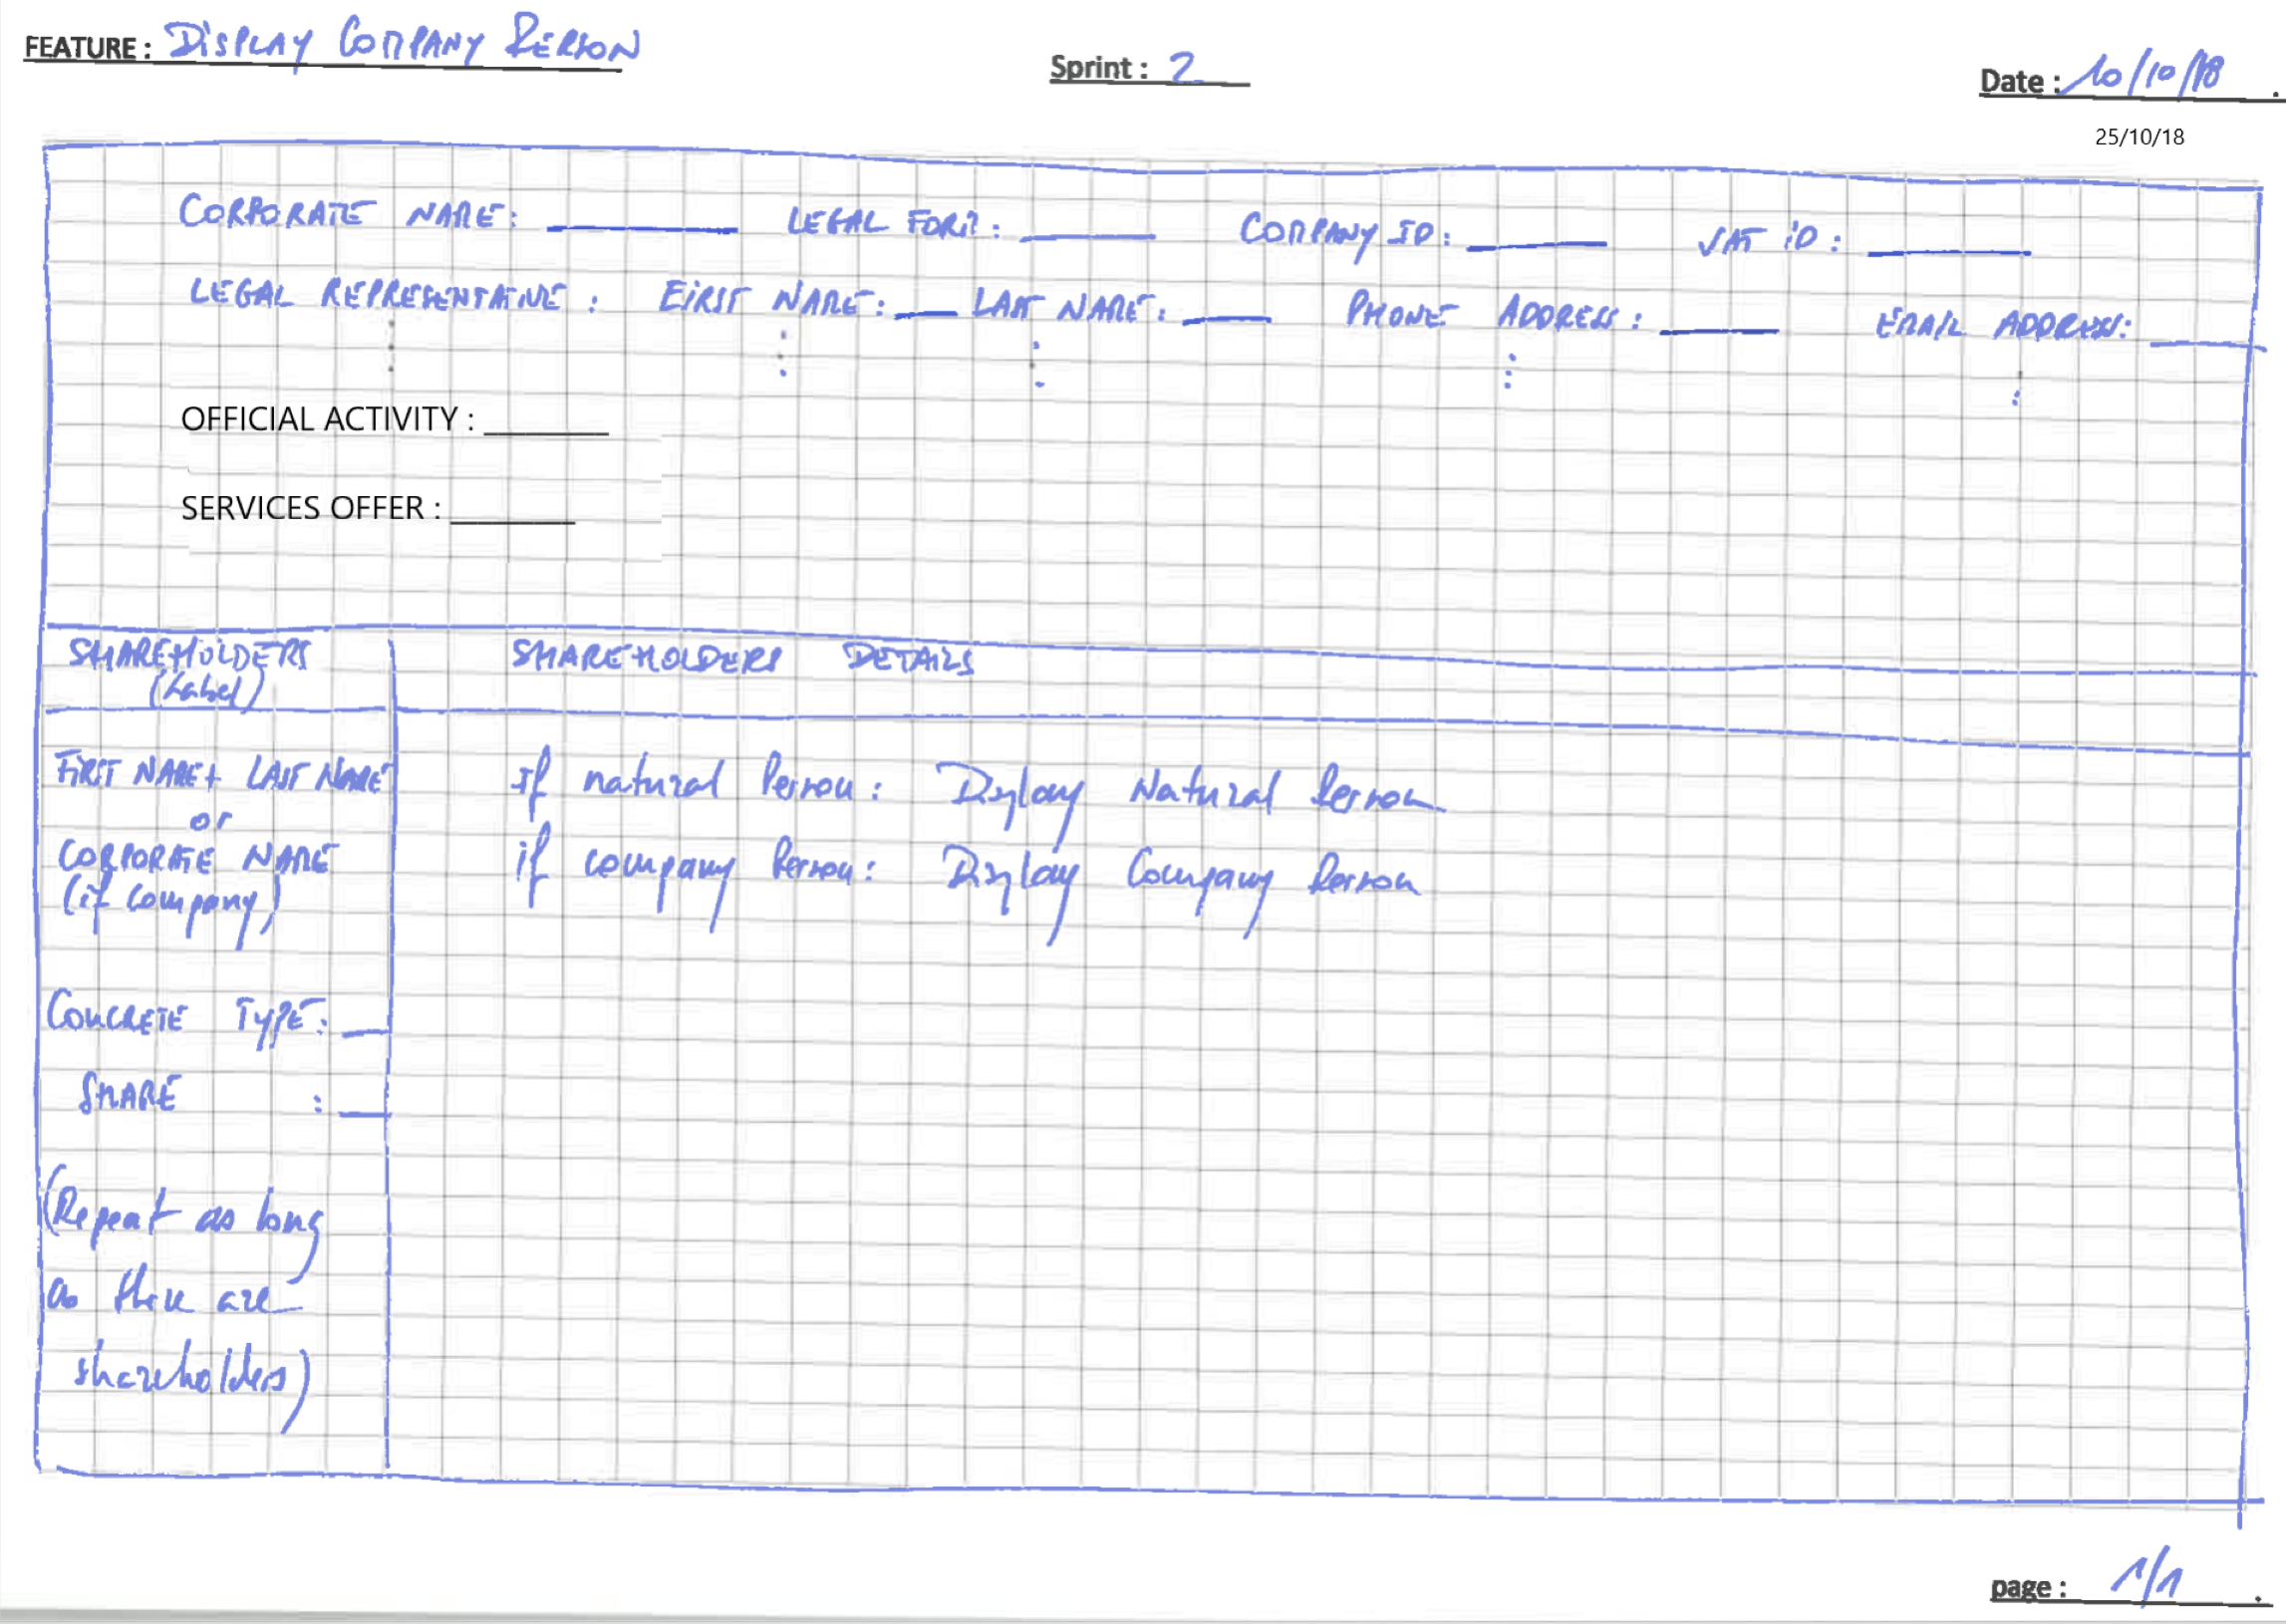 FEATURE : DISPLAY COMPANY PERSON
Sprint : 2
Date : 10/10/18
25/10/18
CORPORATE NAME: LEGAL FORM: COMPANY ID: VAT ID:
LEGAL REPRESENTATIVE: FIRST NAME: LAST NAME: PHONE ADDRESS: EMAIL ADDRESS:
OFFICIAL ACTIVITY :
SERVICES OFFER :
SHAREHOLDERS
(Label)
SHAREHOLDERS DETAILS
FIRST NAME + LAST NAME
or
CORPORATE NAME
(if company)
If natural Person: Display Natural Person
if company Person: Display Company Person
CONCRETE TYPE:
SHARE :
(Repeat as long
as there are
shareholders)
page : 1/1